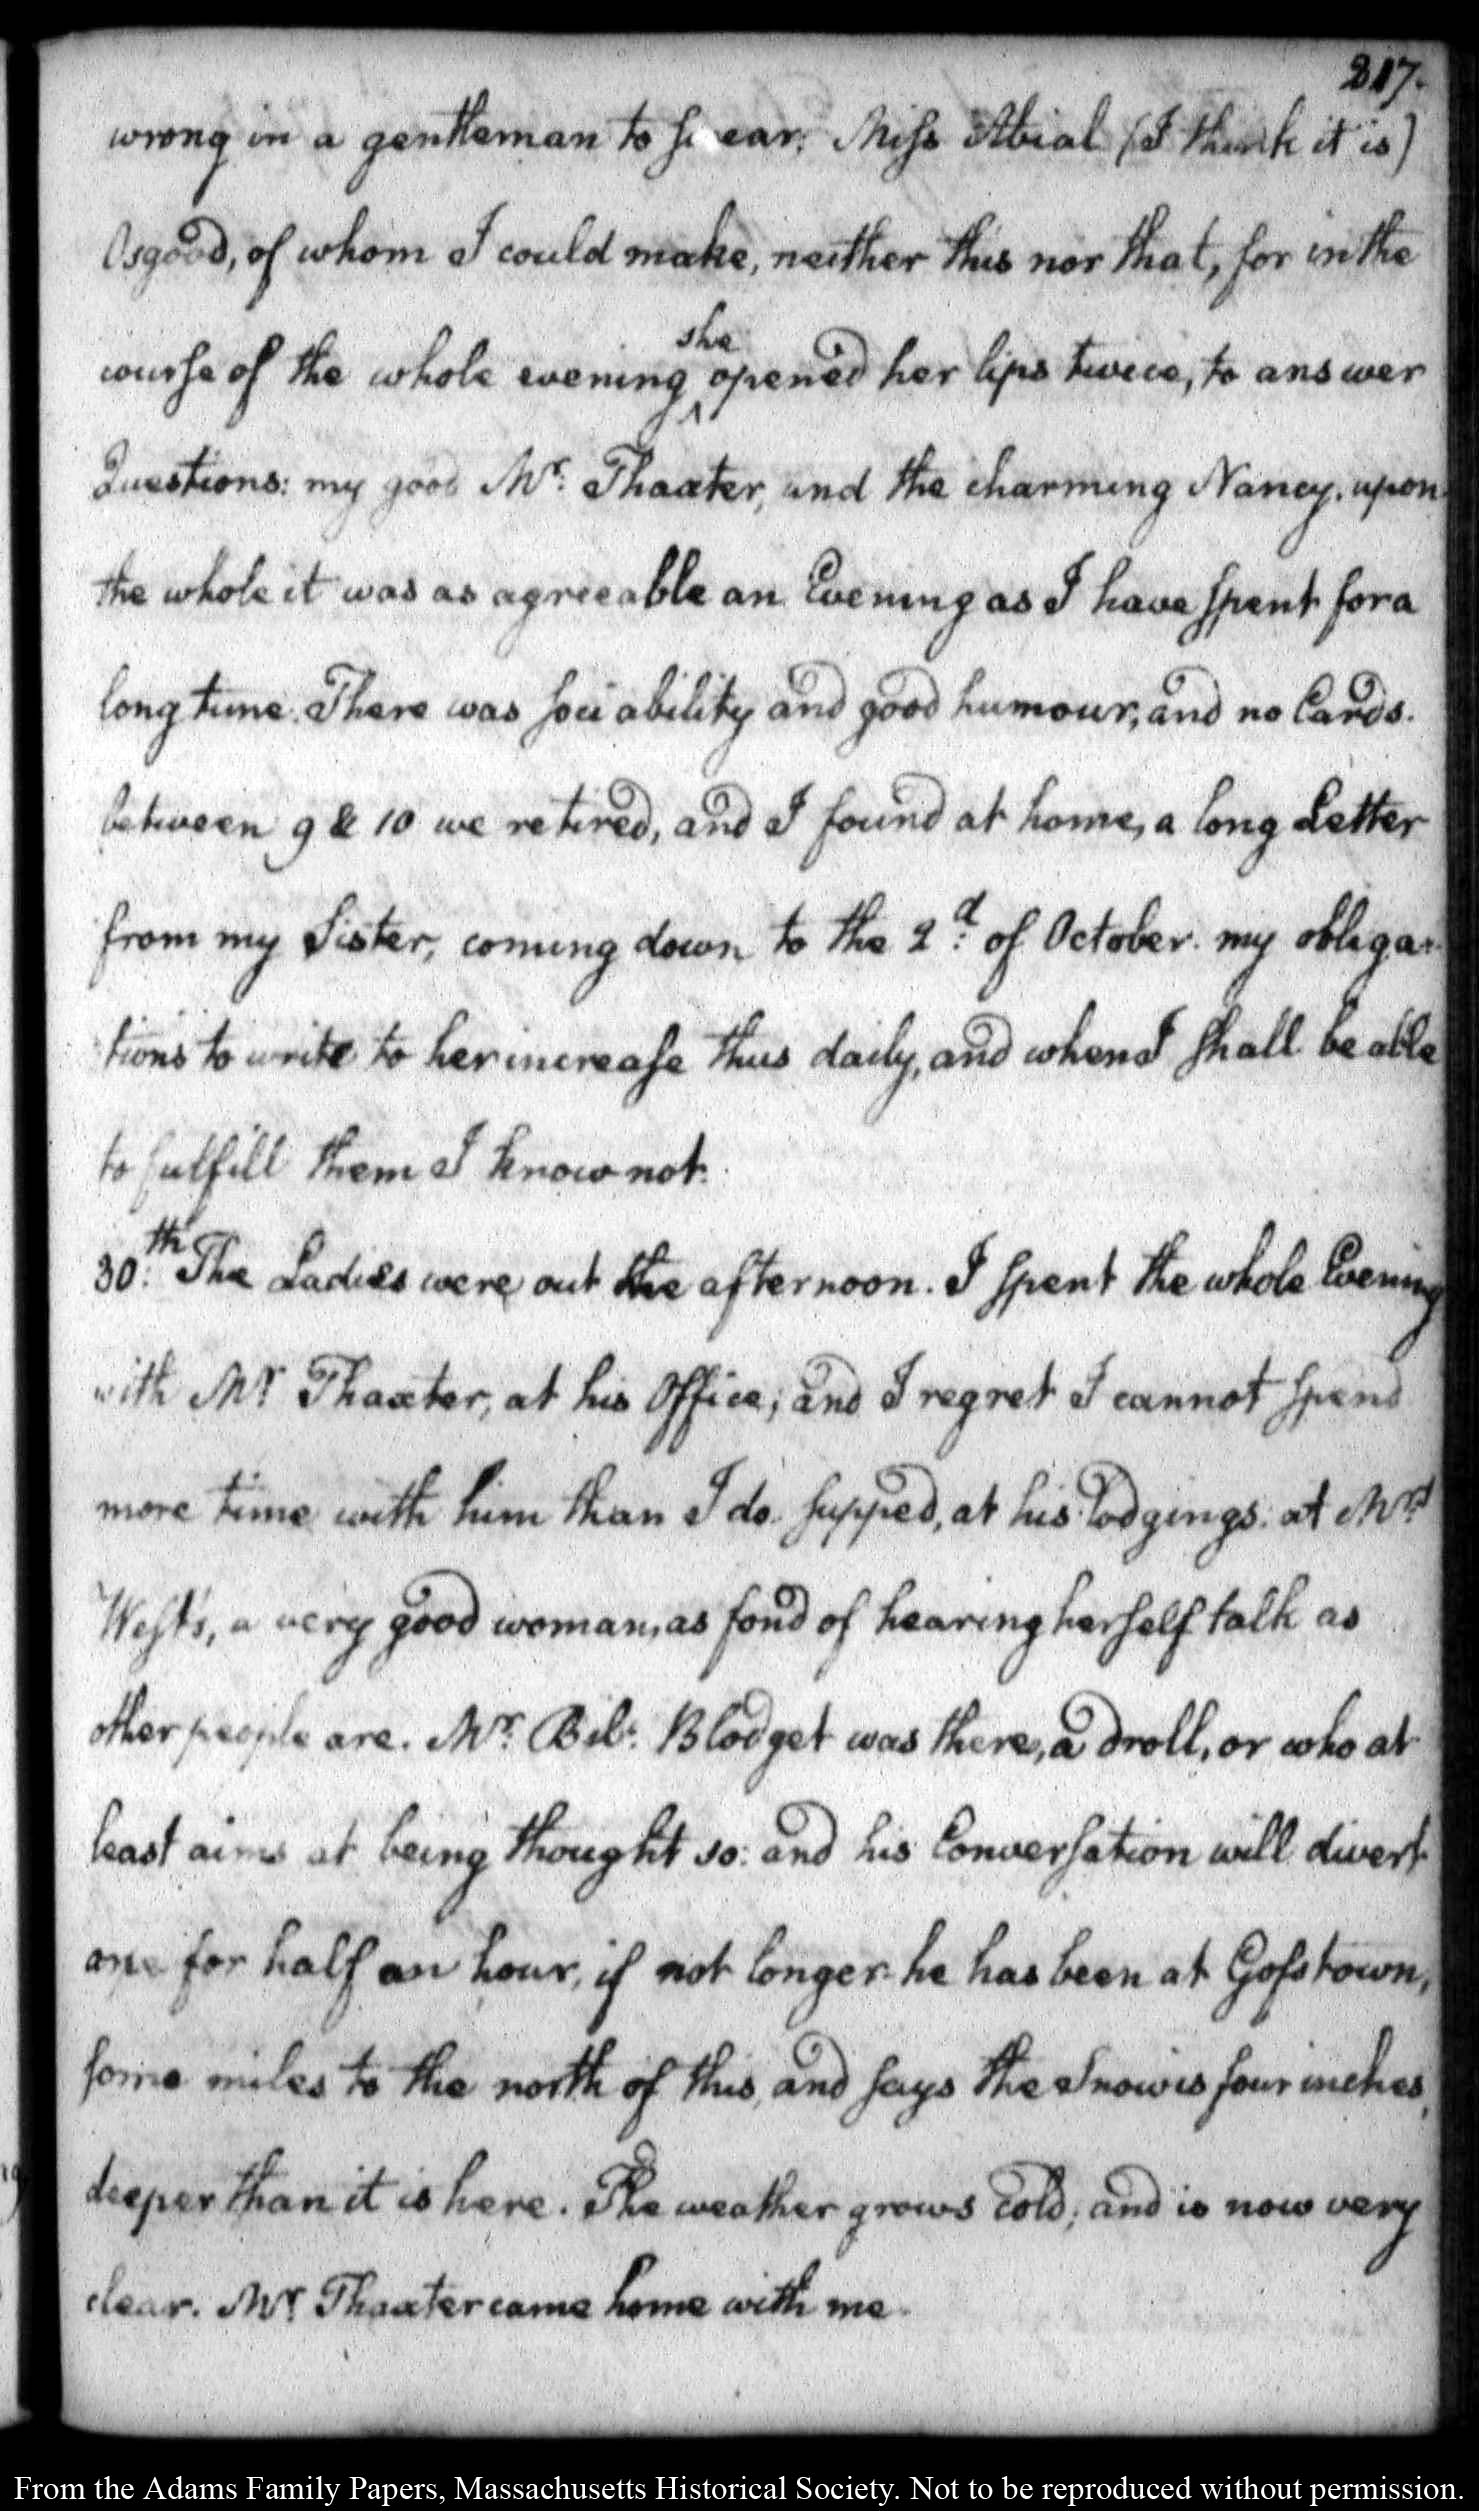 217.
wrong in a gentleman to swear. Miss Abial (I think it is)
Osgood, of whom I could make, neither this nor that, for in the
she
course of the whole evening ‸ opened her lips twice, to answer
Questions: my good Mr. Thaxter, and the charming Nancy. upon
the whole it was as agreeable an Evening as I have spent for a
long time. There was sociability and good humour, and no Cards.
between 9 & 10 we retired, and I found at home, a long Letter
from my Sister, coming down to the 2d. of October. my obliga-
tions to write to her increase thus daily, and when I shall be able
to fulfill them I know not.
30th. The Ladies were out the afternoon. I spent the whole Evening
with Mr Thaxter, at his Office; and I regret I cannot spend
more time with him than I do. supped, at his lodgings: at Mrs.
West's, a very good woman, as fond of hearing herself talk as
other people are. Mr. Bil: Blodget was there, a droll, or who at
least aims at being thought so: and his Conversation will divert
one for half an hour, if not longer. he has been at Gofstown,
some miles to the north of this, and says the Snow is four inches,
deeper than it is here. The weather grows cold; and is now very
clear. Mr. Thaxter came home with me.
From the Adams Family Papers, Massachusetts Historical Society. Not to be reproduced without permission.